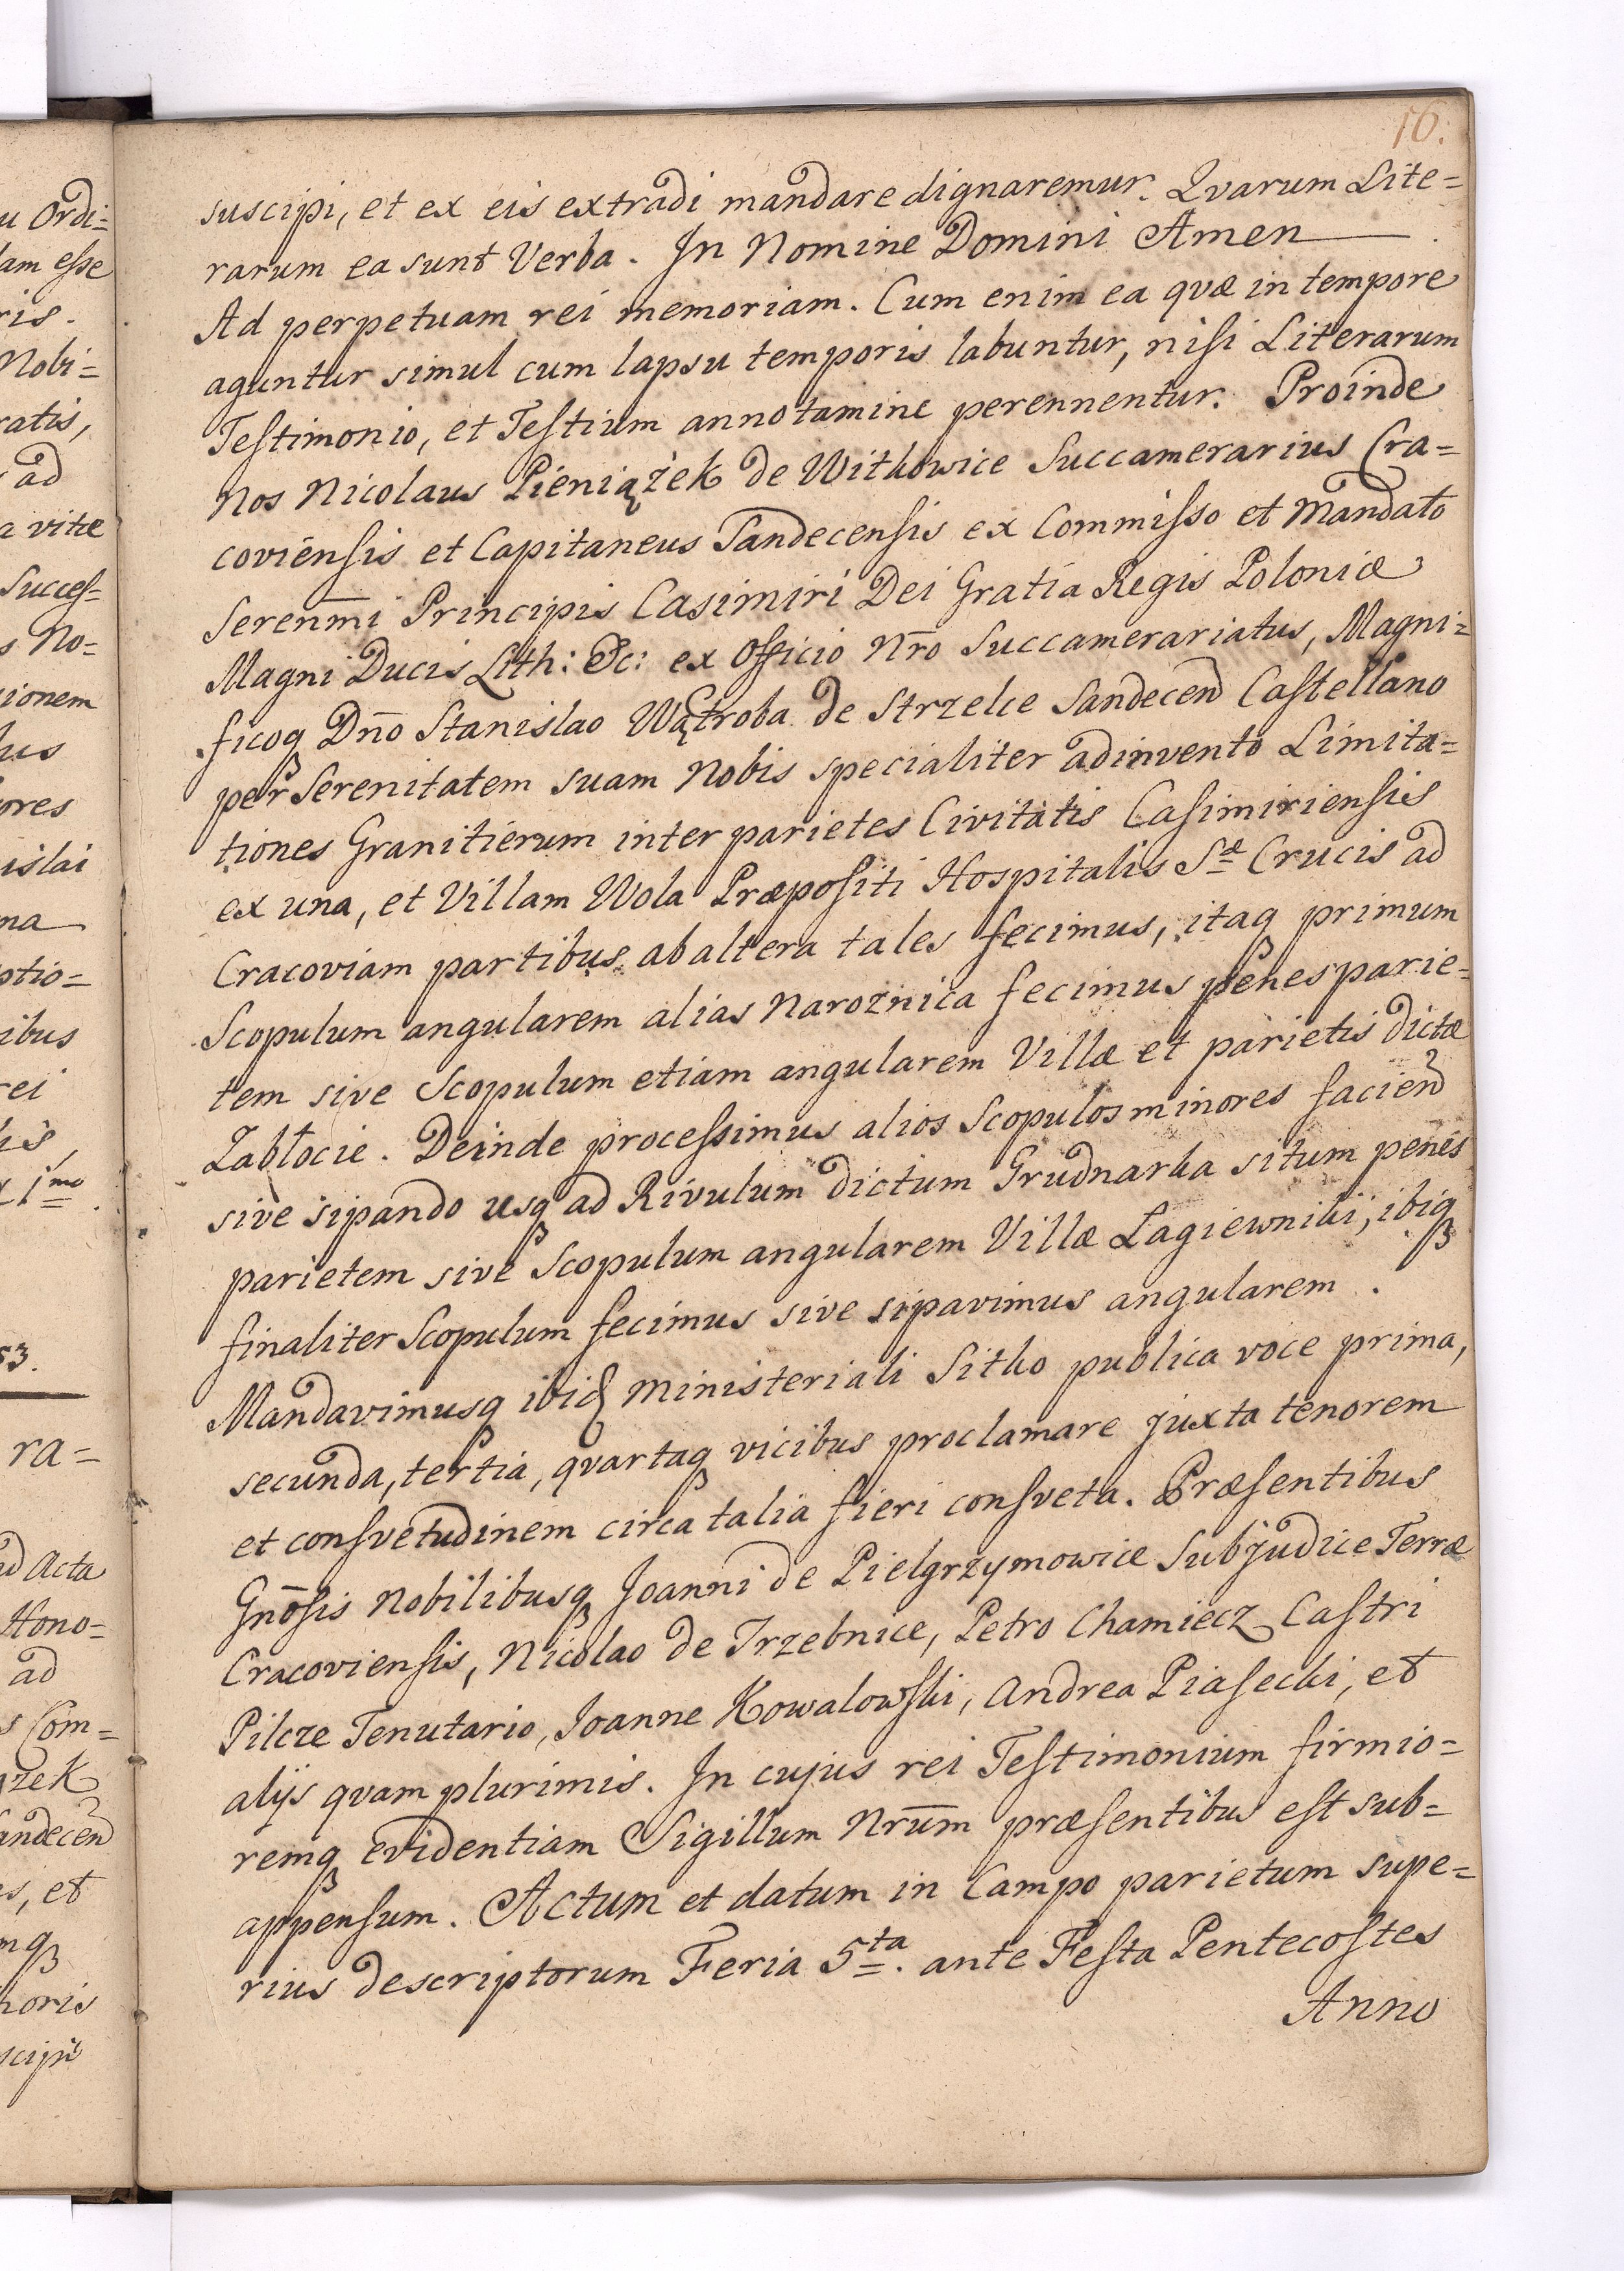 16.
suscipi, et ex eis extradi mandare dignaremur. Qvarum Lite=
rarum ea sunt Verba. In Nomine Domini Amen
Ad perpetuam rei memoriam. Cum enim ea qvæ in tempore
aguntur simul cum lapsu temporis labuntur, nisi Literarum
Testimonio, et Testium annotamine perennentur. Proinde
Nos Nicolaus Pieniążek de Witkowice Succamerarius Cra=
coviensis et Capitaneus Sandecensis ex Commisso et Mandato
Serenm̄i Principis Casimiri Dei Gratia Regis Poloniæ
Magni Ducis Lith: &c: ex Officio Nr̄o Succamerariatus, Magni=
ficoq Dn̄o Stanislao Wątroba de Strzelce Sandecen Castellano
per Serenitatem suam Nobis specialiter adinvento Limita=
tiones Granitierum inter parietes Civitatis Casimiriensis
ex una, et Villam Wola Præpositi Hospitalis Sæ Crucis ad
Cracoviam partibus ab altera tales fecimus, itaq primum
Scopulum angularem alias Naroznica fecimus penes parie=
tem sive Scopulum etiam angularem Villæ et parietis dictæ
Zabłocie. Deinde processimus alios Scopulos minores facien
sive sipando usq ad Rivulum dictum Grudnarka situm penes
parietem sive Scopulum angularem Villæ Lagiewniki, ibiq
finaliter Scopulum fecimus sive sipavimus angularem.
Mandavimusq ibid Ministeriali Sitko publica voce prima,
secunda, tertia, qvartaq vicibus proclamare juxta tenorem
et consvetudinem circa talia fieri consveta. Præsentibus
Gn̄osis Nobilibusq Joanni de Pielgrzymowice Subjudice Terræ
Cracoviensis, Nicolao de Trzebnice, Petro Chamiecz Castri
Pilcze Tenutario, Joanne Kowalowski, Andrea Piasecki, et
alijs qvam plurimis. In cujus rei Testimonium firmio=
remq evidentiam Sigillum Nrūm præsentibus est sub=
appensum. Actum et datum in Campo parietum supe=
rius descriptorum Feria 5ta. ante Festa Pentecostes
Anno